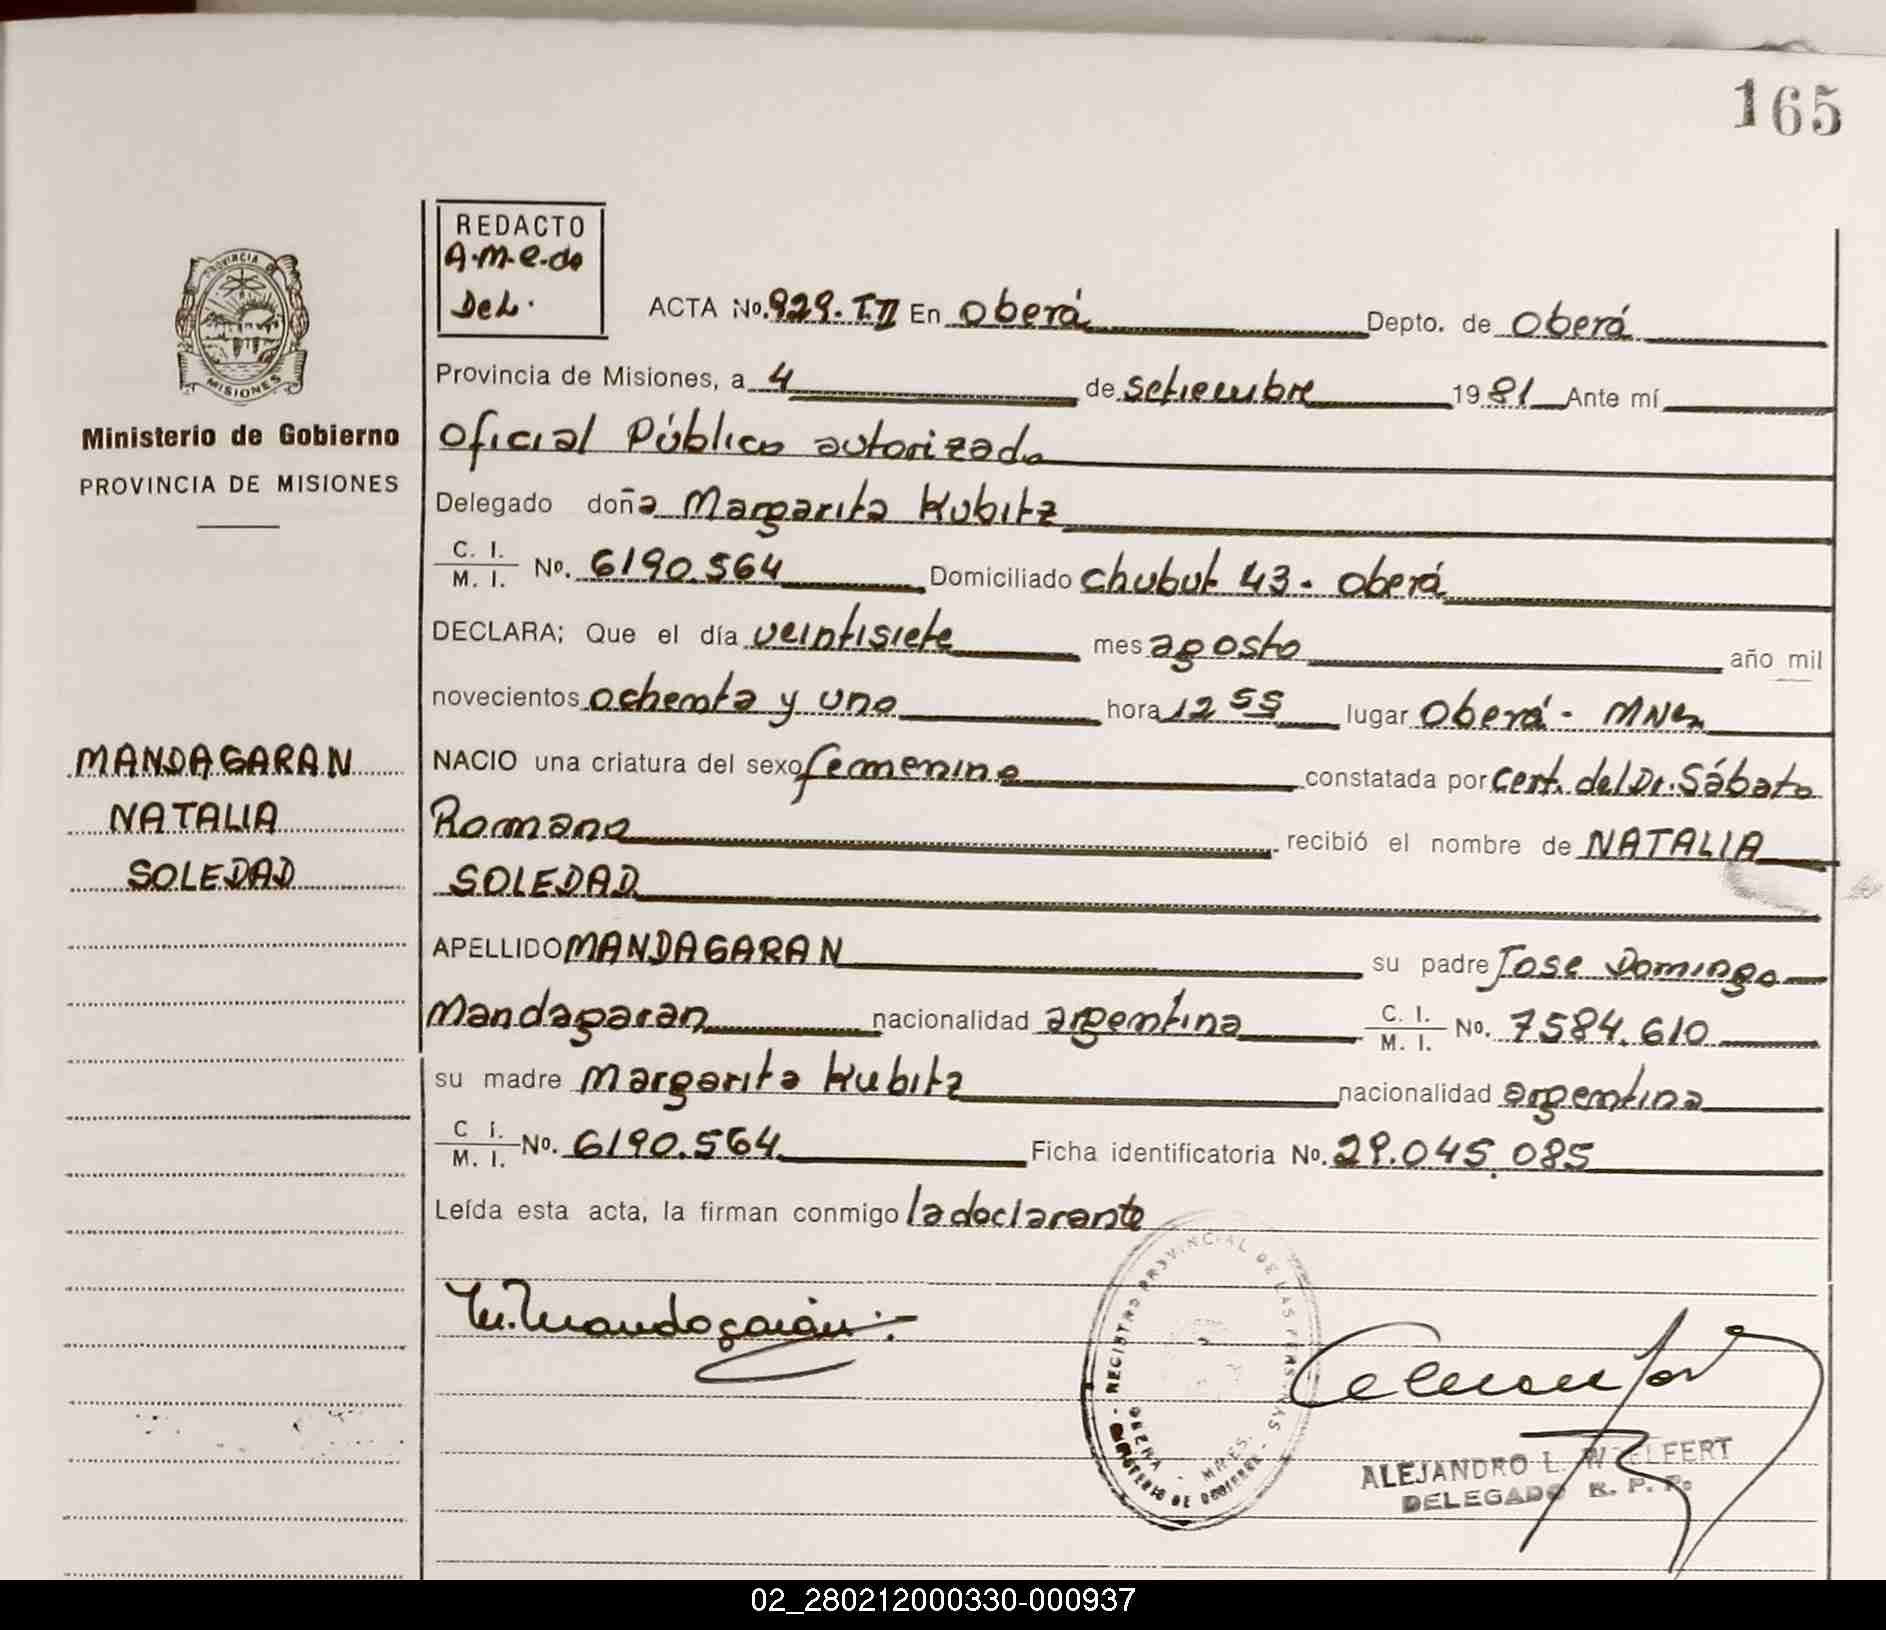 165
REDACTO
A.M.C.do
Del.
PROVINCIA DE
MISIONES
ACTA No. 929. T.II En Oberá Depto. de Oberá
Provincia de Misiones, a 4 de setiembre 1981 Ante mí
Ministerio de Gobierno
PROVINCIA DE MISIONES
Oficial Público autorizado
Delegado doña Margarita Kubitz
C. I. / M. I. No. 6190.564 Domiciliado Chubut 43 - Oberá
DECLARA; Que el día veintisiete mes agosto año mil
novecientos ochenta y uno hora 12 55 lugar Oberá - MNes
MANDAGARAN
NATALIA
SOLEDAD
NACIO una criatura del sexo femenino constatada por Cert. del Dr. Sábato
Romano recibió el nombre de NATALIA
SOLEDAD
APELLIDO MANDAGARAN su padre Jose Domingo
Mandagaran nacionalidad argentina C. I. / M. I. No. 7584.610
su madre Margarita Kubitz nacionalidad argentina
C I. / M. I. No. 6190.564 Ficha identificatoria No. 29.045.085
Leída esta acta, la firman conmigo la declarante
M. Mandagarán
REGISTRO PROVINCIAL DE LAS PERSONAS
OBERA - MNES.
MINISTERIO DE GOBIERNO
ALEJANDRO L. WELFERT
DELEGADO R. P. P.
02_280212000330-000937